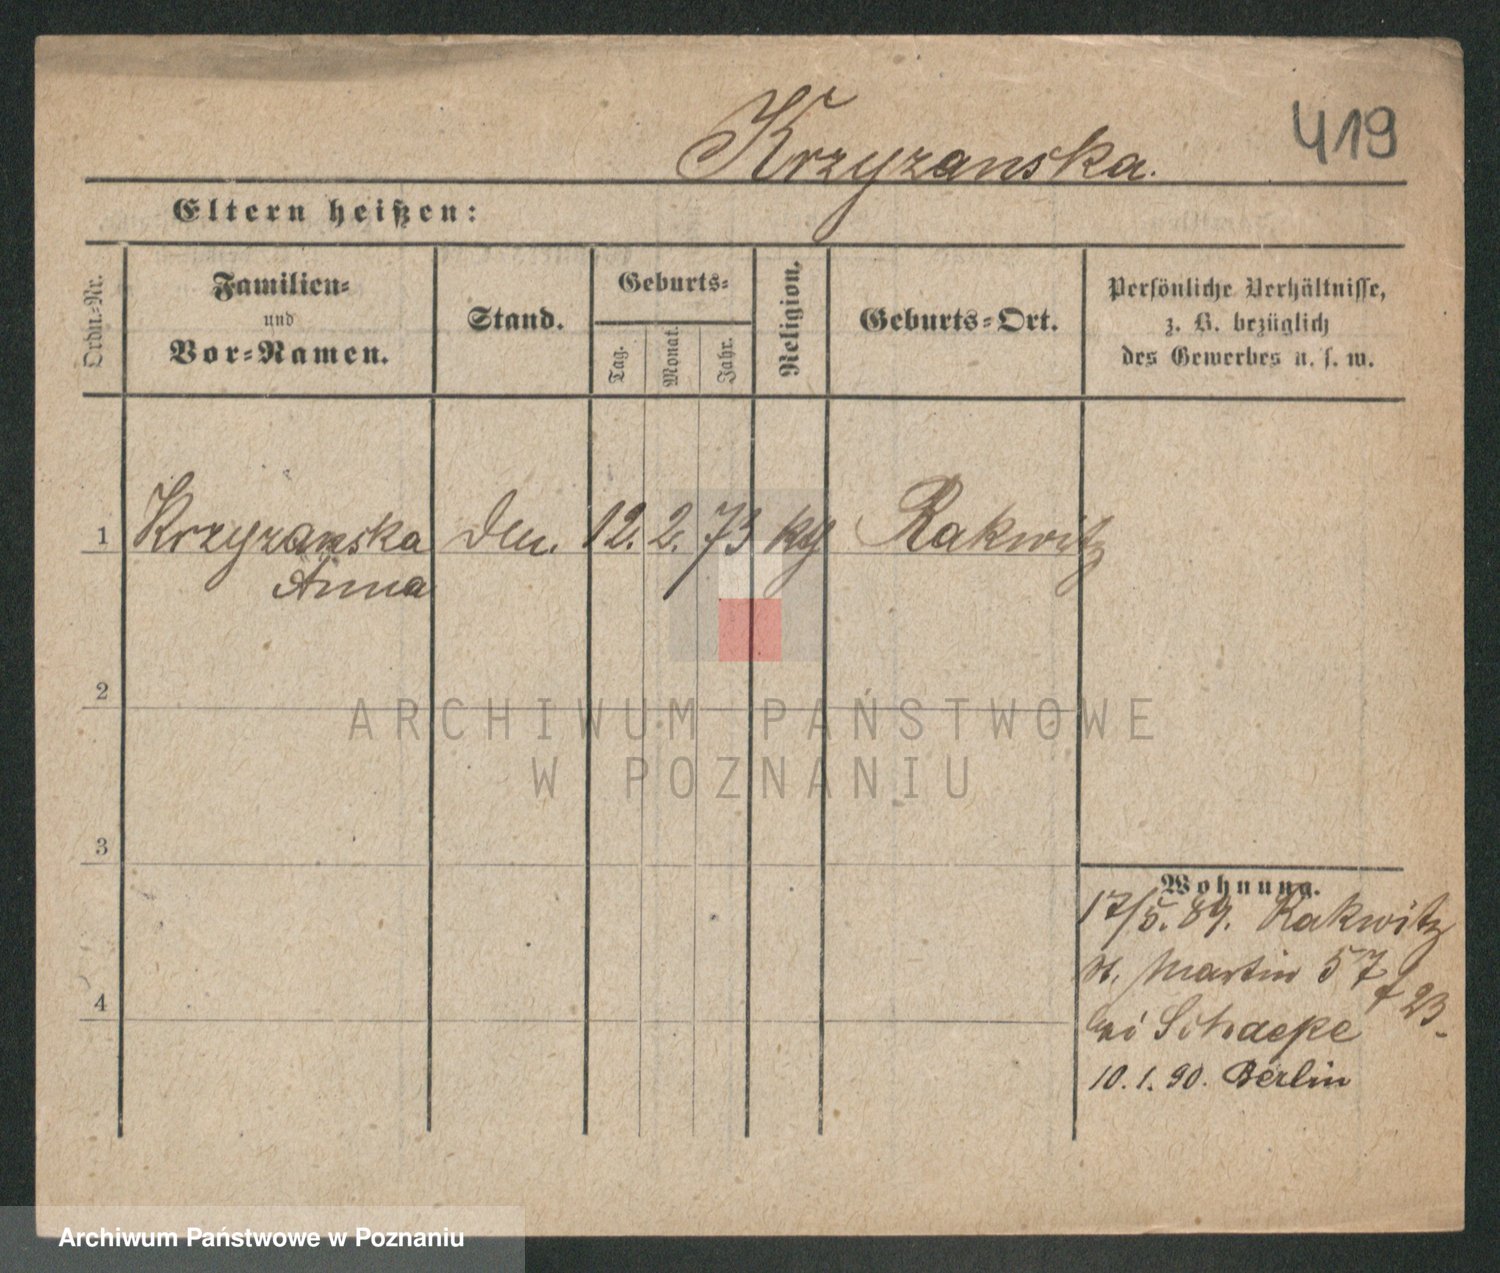 Krzyzanska.
419
Eltern heißen:
Ordn.-Nr.
Familien-
und
Vor-Namen.
Stand.
Geburts-
Tag.
Monat.
Jahr.
Religion.
Geburts-Ort.
Persönliche Verhältnisse,
z. B. bezüglich
des Gewerbes u. s. w.
1 Krzyzanska 12. 2. 73 Rakwitz
Anna
2
ARCHIWUM PAŃSTWOWE
W POZNANIU
3
Wohnung.
17/5. 89. Rakwitz
St. Martin 57
bei
4
10. 1. 90. Berlin
Archiwum Państwowe w Poznaniu